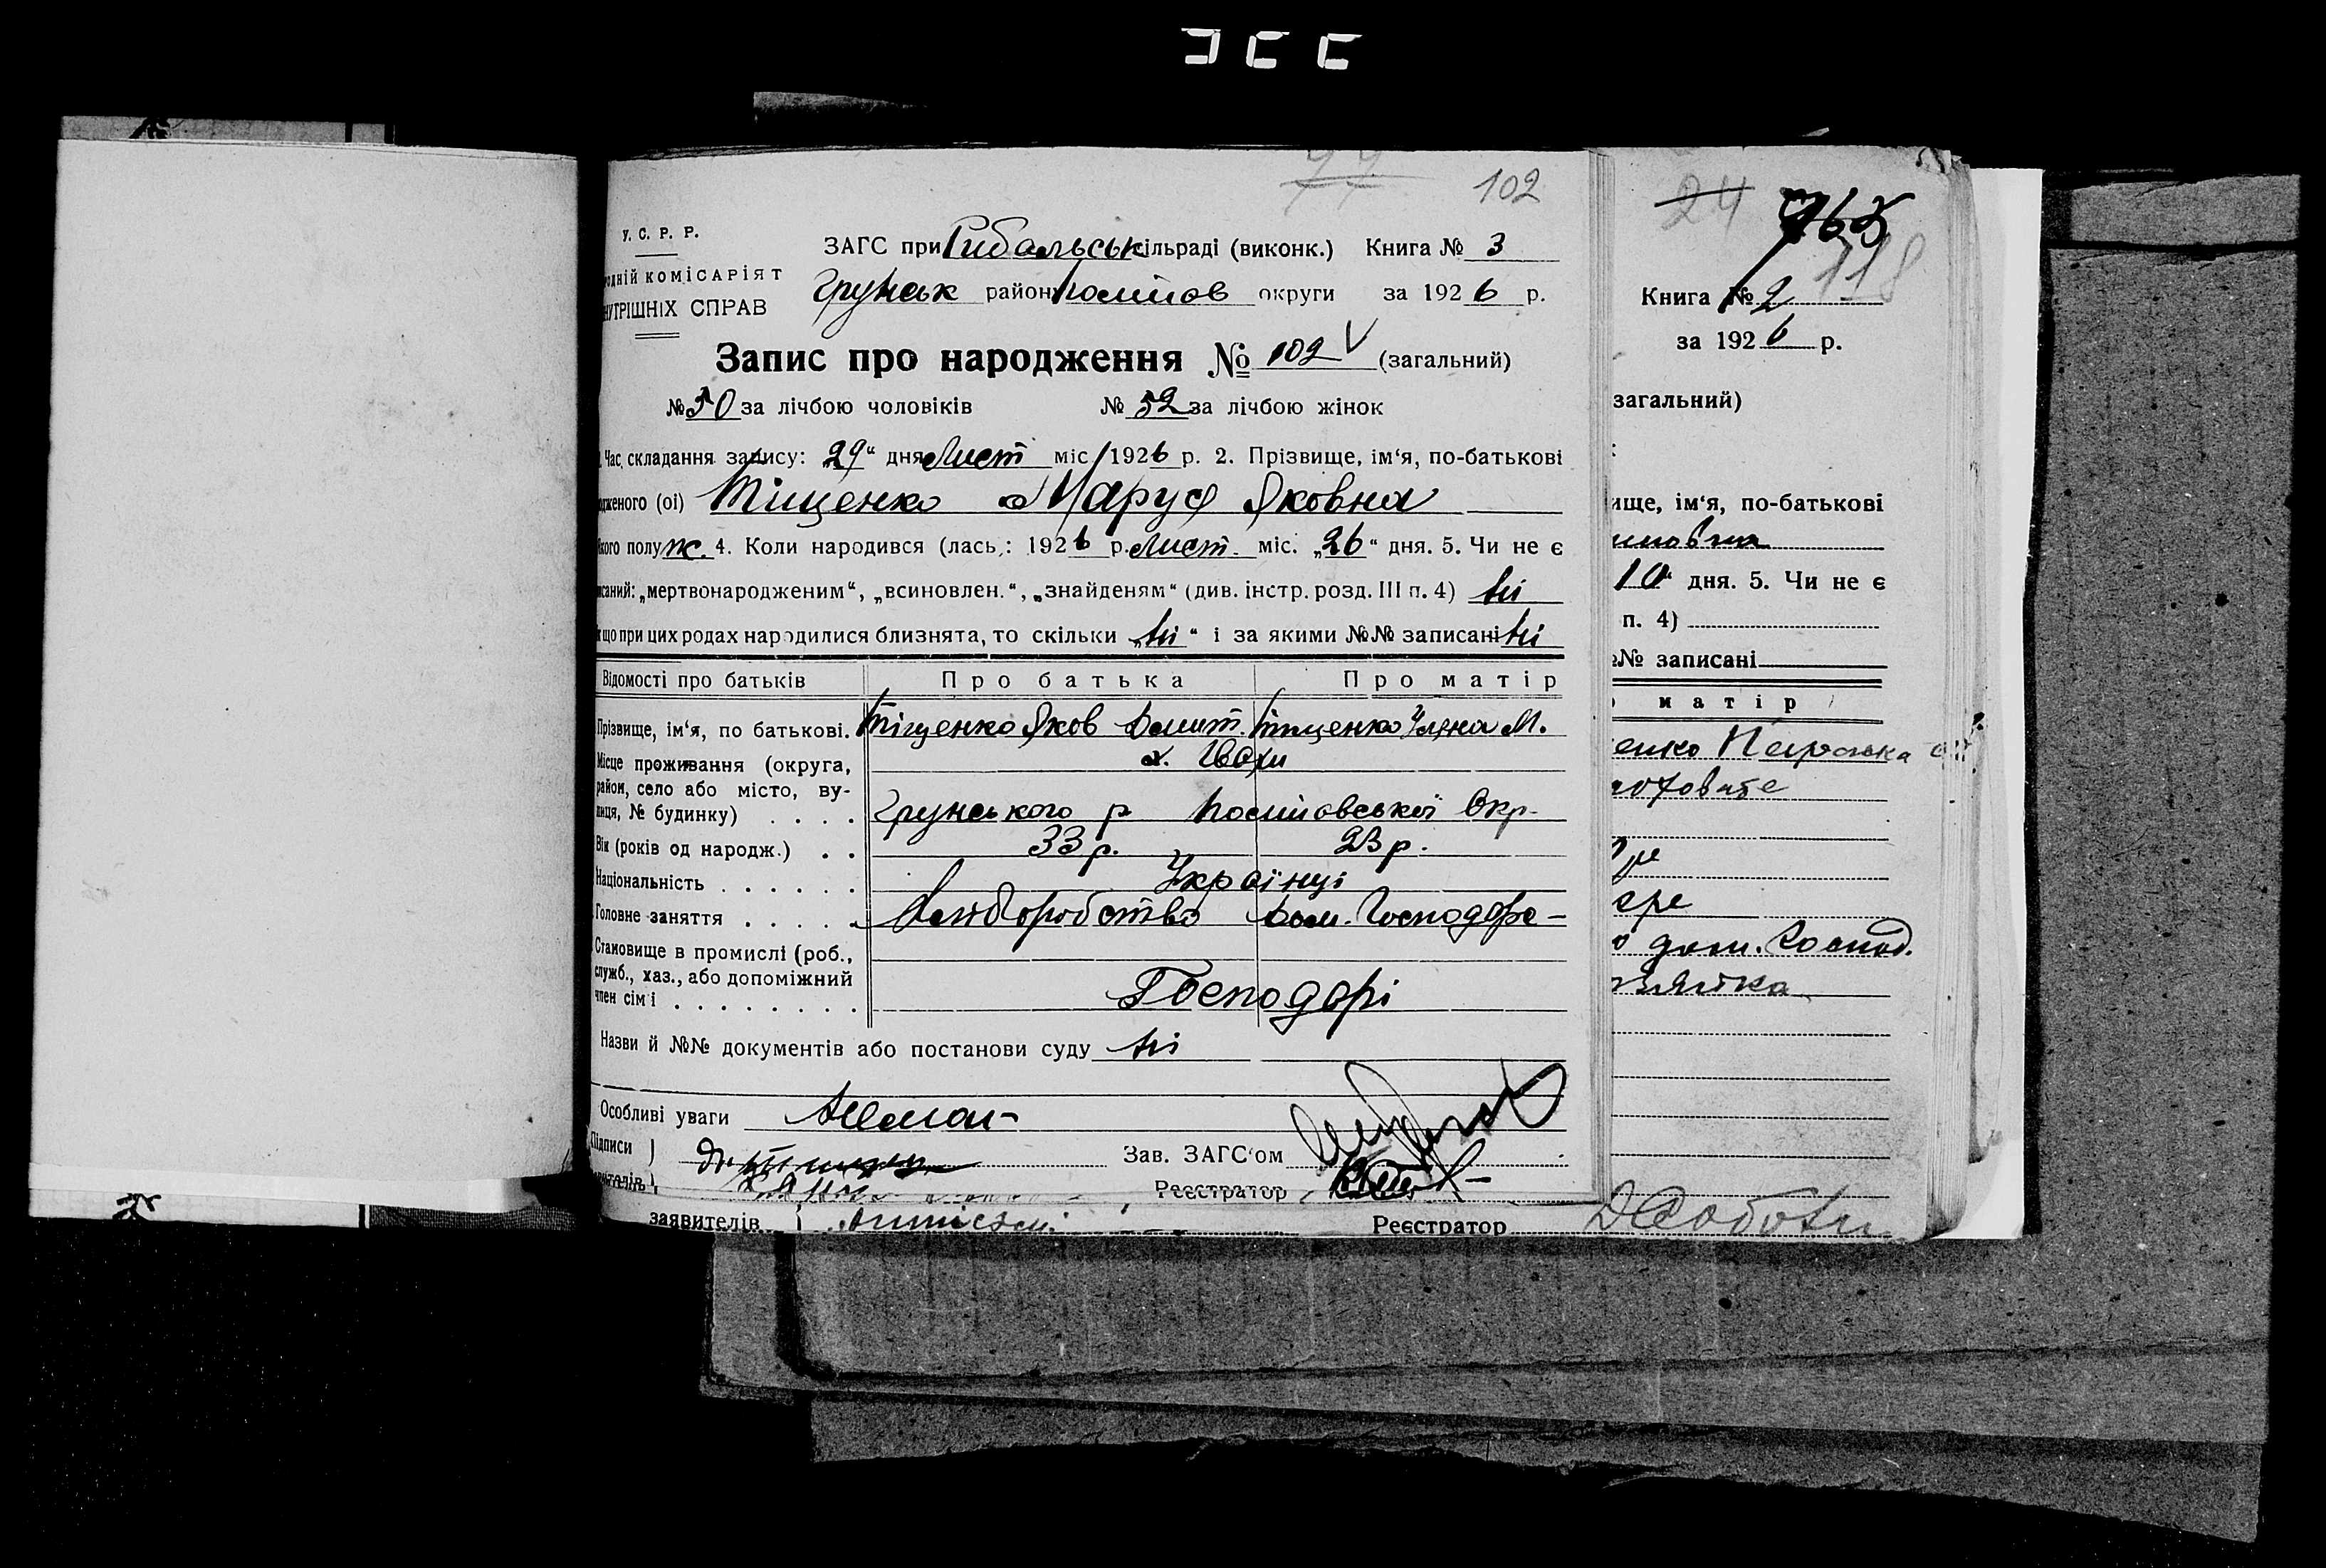 77 102
У. С. Р. Р.
ЗАГС при Рибальськ сільраді (виконк.) Книга № 3
одній КОМІСАРІЯТ
Грунськ район округи за 1926 р.
НУТРІШНІХ СПРАВ
Запис про народження № 102 (загальний)
№ 50 за лічбою чоловіків № 52 за лічбою жінок
Час складання запису: „29“ дня Лист міс 1926 р. 2. Прізвище, ім‘я, по-батькові
дженого (ої) Тіщенко Маруся Яковна
кого полу ж. 4. Коли народився (лась): 1926 р. Лист. міс. „26“ дня. 5. Чи не є
исаний: „мертвонародженим“, „всиновлен.“, „знайденям“ (див. інстр. розд. III п. 4) ні
що при цих родах народилися близнята, то скільки „ні“ і за якими №№ записані ні
Відомості про батьків Про батька Про матір
Прізвище, ім‘я, по батькові. Тіщенко Яков Тіщенко Уляна М.
Місце проживання (округа,
район, село або місто, ву-
лиця, № будинку) . . . . Грунського р Окр.
Вік (років од народж.) . . 33 р. 23 р.
Національність . . . . . . Українці
Головне заняття . . . . . Хліборобство Дом. Господарс-
Становище в промислі (роб.,
служб., хаз., або допоміжний
член сім‘ї . . . . . . . . Господарі
Назви й №№ документів або постанови суду ні
Особливі уваги Немає
Підписи Зав. ЗАГС‘ом
Реєстратор
заявителів Реєстратор
24 118
Книга № 2
за 1926 р.
загальний)
ище, ім‘я, по-батькові
10“ дня. 5. Чи не є
п. 4)
№ записані
матір
дом. Господ.